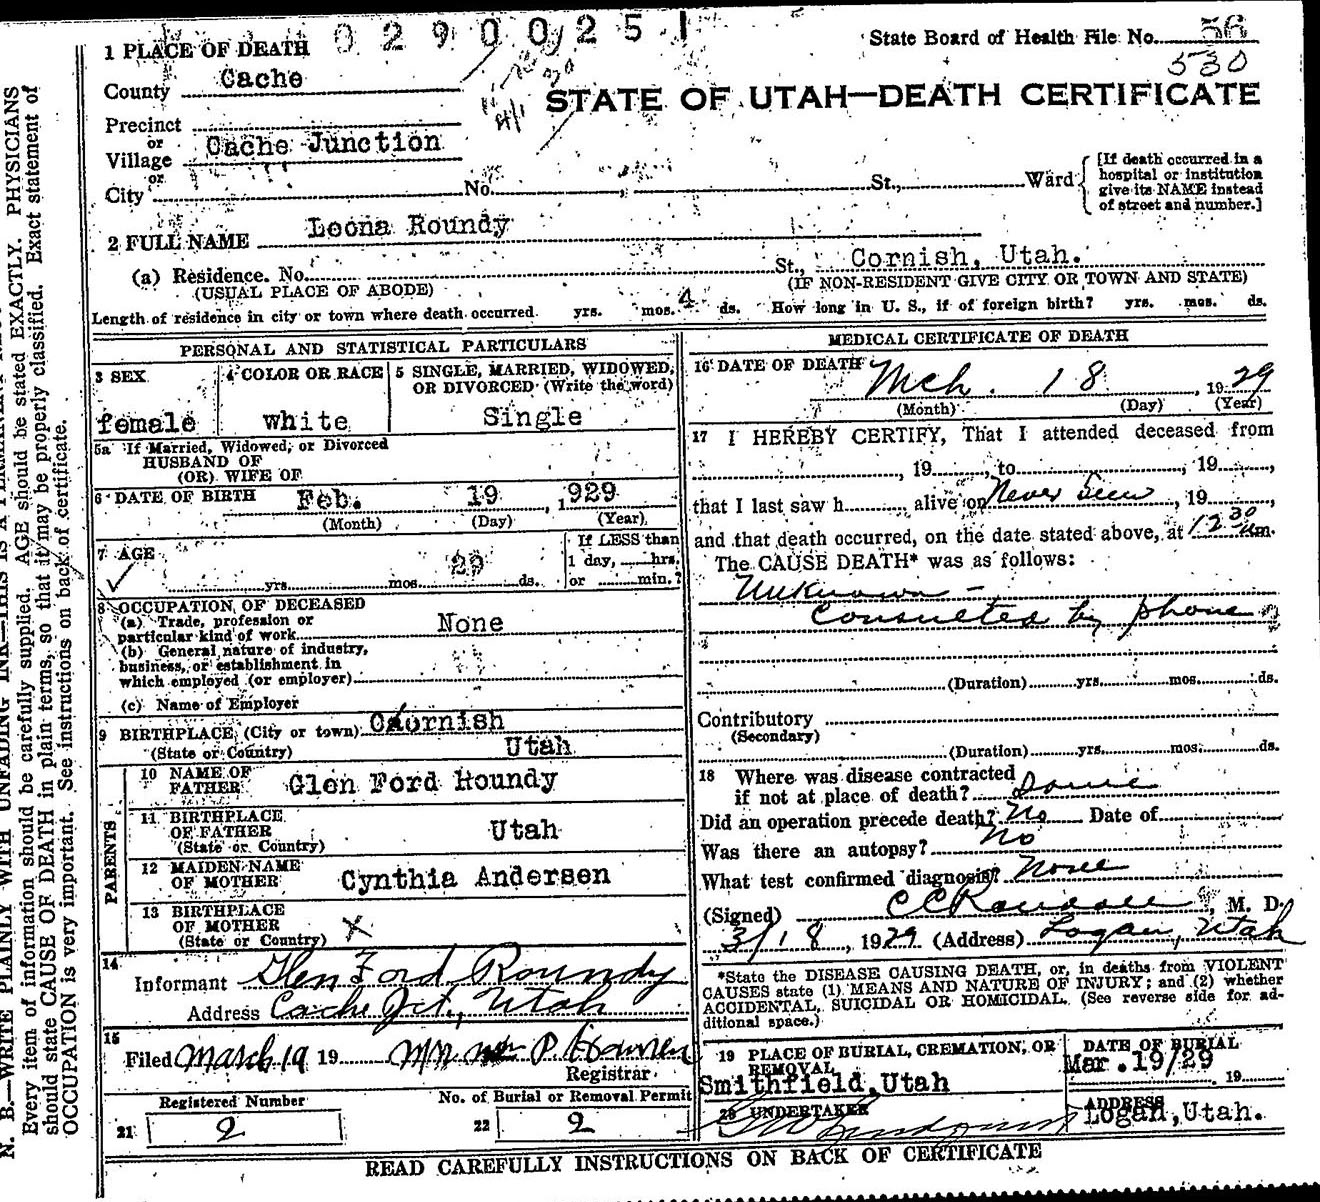 0290025
State Board of Health File No. 56
530
STATE OF UTAH—DEATH CERTIFICATE
1 PLACE OF DEATH
County Cache
Precinct
or
Village Cache Junction
or
City No. , St., Ward
[If death occurred in a
hospital or institution
give its NAME instead
of street and number.]
2 FULL NAME Leona Roundy
(a) Residence. No. St., Cornish, Utah.
(USUAL PLACE OF ABODE) (IF NON-RESIDENT GIVE CITY OR TOWN AND STATE)
Length of residence in city or town where death occurred yrs. mos. 4 ds. How long in U. S., if of foreign birth? yrs. mos. ds.
PERSONAL AND STATISTICAL PARTICULARS
3 SEX
female
4 COLOR OR RACE
white
5 SINGLE, MARRIED, WIDOWED,
OR DIVORCED (Write the word)
Single
5a If Married, Widowed, or Divorced
HUSBAND OF
(OR) WIFE OF
6 DATE OF BIRTH Feb. 19, 1929
(Month) (Day) (Year)
7 AGE
yrs. mos. 29 ds.
If LESS than
1 day, hrs.
or min.?
8 OCCUPATION OF DECEASED
(a) Trade, profession or
particular kind of work None
(b) General nature of industry,
business, or establishment in
which employed (or employer)
(c) Name of Employer
9 BIRTHPLACE (City or town) Caornish
(State or Country) Utah
PARENTS
10 NAME OF
FATHER Glen Ford Roundy
11 BIRTHPLACE
OF FATHER
(State or Country) Utah
12 MAIDEN NAME
OF MOTHER Cynthia Andersen
13 BIRTHPLACE
OF MOTHER
(State or Country) X
14
Informant Glen Ford Roundy
Address Cache Jct., Utah
15
Filed March 19 19 P.
Registrar
Registered Number
21 2
No. of Burial or Removal Permit
22 2
MEDICAL CERTIFICATE OF DEATH
16 DATE OF DEATH Mch. 18, 1929
(Month) (Day) (Year)
17 I HEREBY CERTIFY, That I attended deceased from
, 19 , to , 19 ,
that I last saw h alive on Never Seen, 19 ,
and that death occurred, on the date stated above, at 12 30 am.
The CAUSE DEATH* was as follows:
Unknown —
Consulted by phone
(Duration) yrs. mos. ds.
Contributory
(Secondary)
(Duration) yrs. mos. ds.
18 Where was disease contracted
if not at place of death?
Did an operation precede death? No Date of
Was there an autopsy? No
What test confirmed diagnosis? None
(Signed) C C Randall, M. D.
3/18, 1929 (Address) Logan, Utah
*State the DISEASE CAUSING DEATH, or, in deaths from VIOLENT
CAUSES state (1) MEANS AND NATURE OF INJURY; and (2) whether
ACCIDENTAL, SUICIDAL OR HOMICIDAL. (See reverse side for ad-
ditional space.)
19 PLACE OF BURIAL, CREMATION, OR
REMOVAL
Smithfield, Utah
DATE OF BURIAL
Mar. 19/29
, 19
20 UNDERTAKER
ADDRESS
Logan, Utah.
READ CAREFULLY INSTRUCTIONS ON BACK OF CERTIFICATE
Every item of information should be carefully supplied. AGE should be stated EXACTLY. PHYSICIANS
should state CAUSE OF DEATH in plain terms, so that it may be properly classified. Exact statement of
OCCUPATION is very important. See instructions on back of certificate.
N. B.—WRITE PLAINLY WITH UNFADING INK—THIS IS A PERMANENT